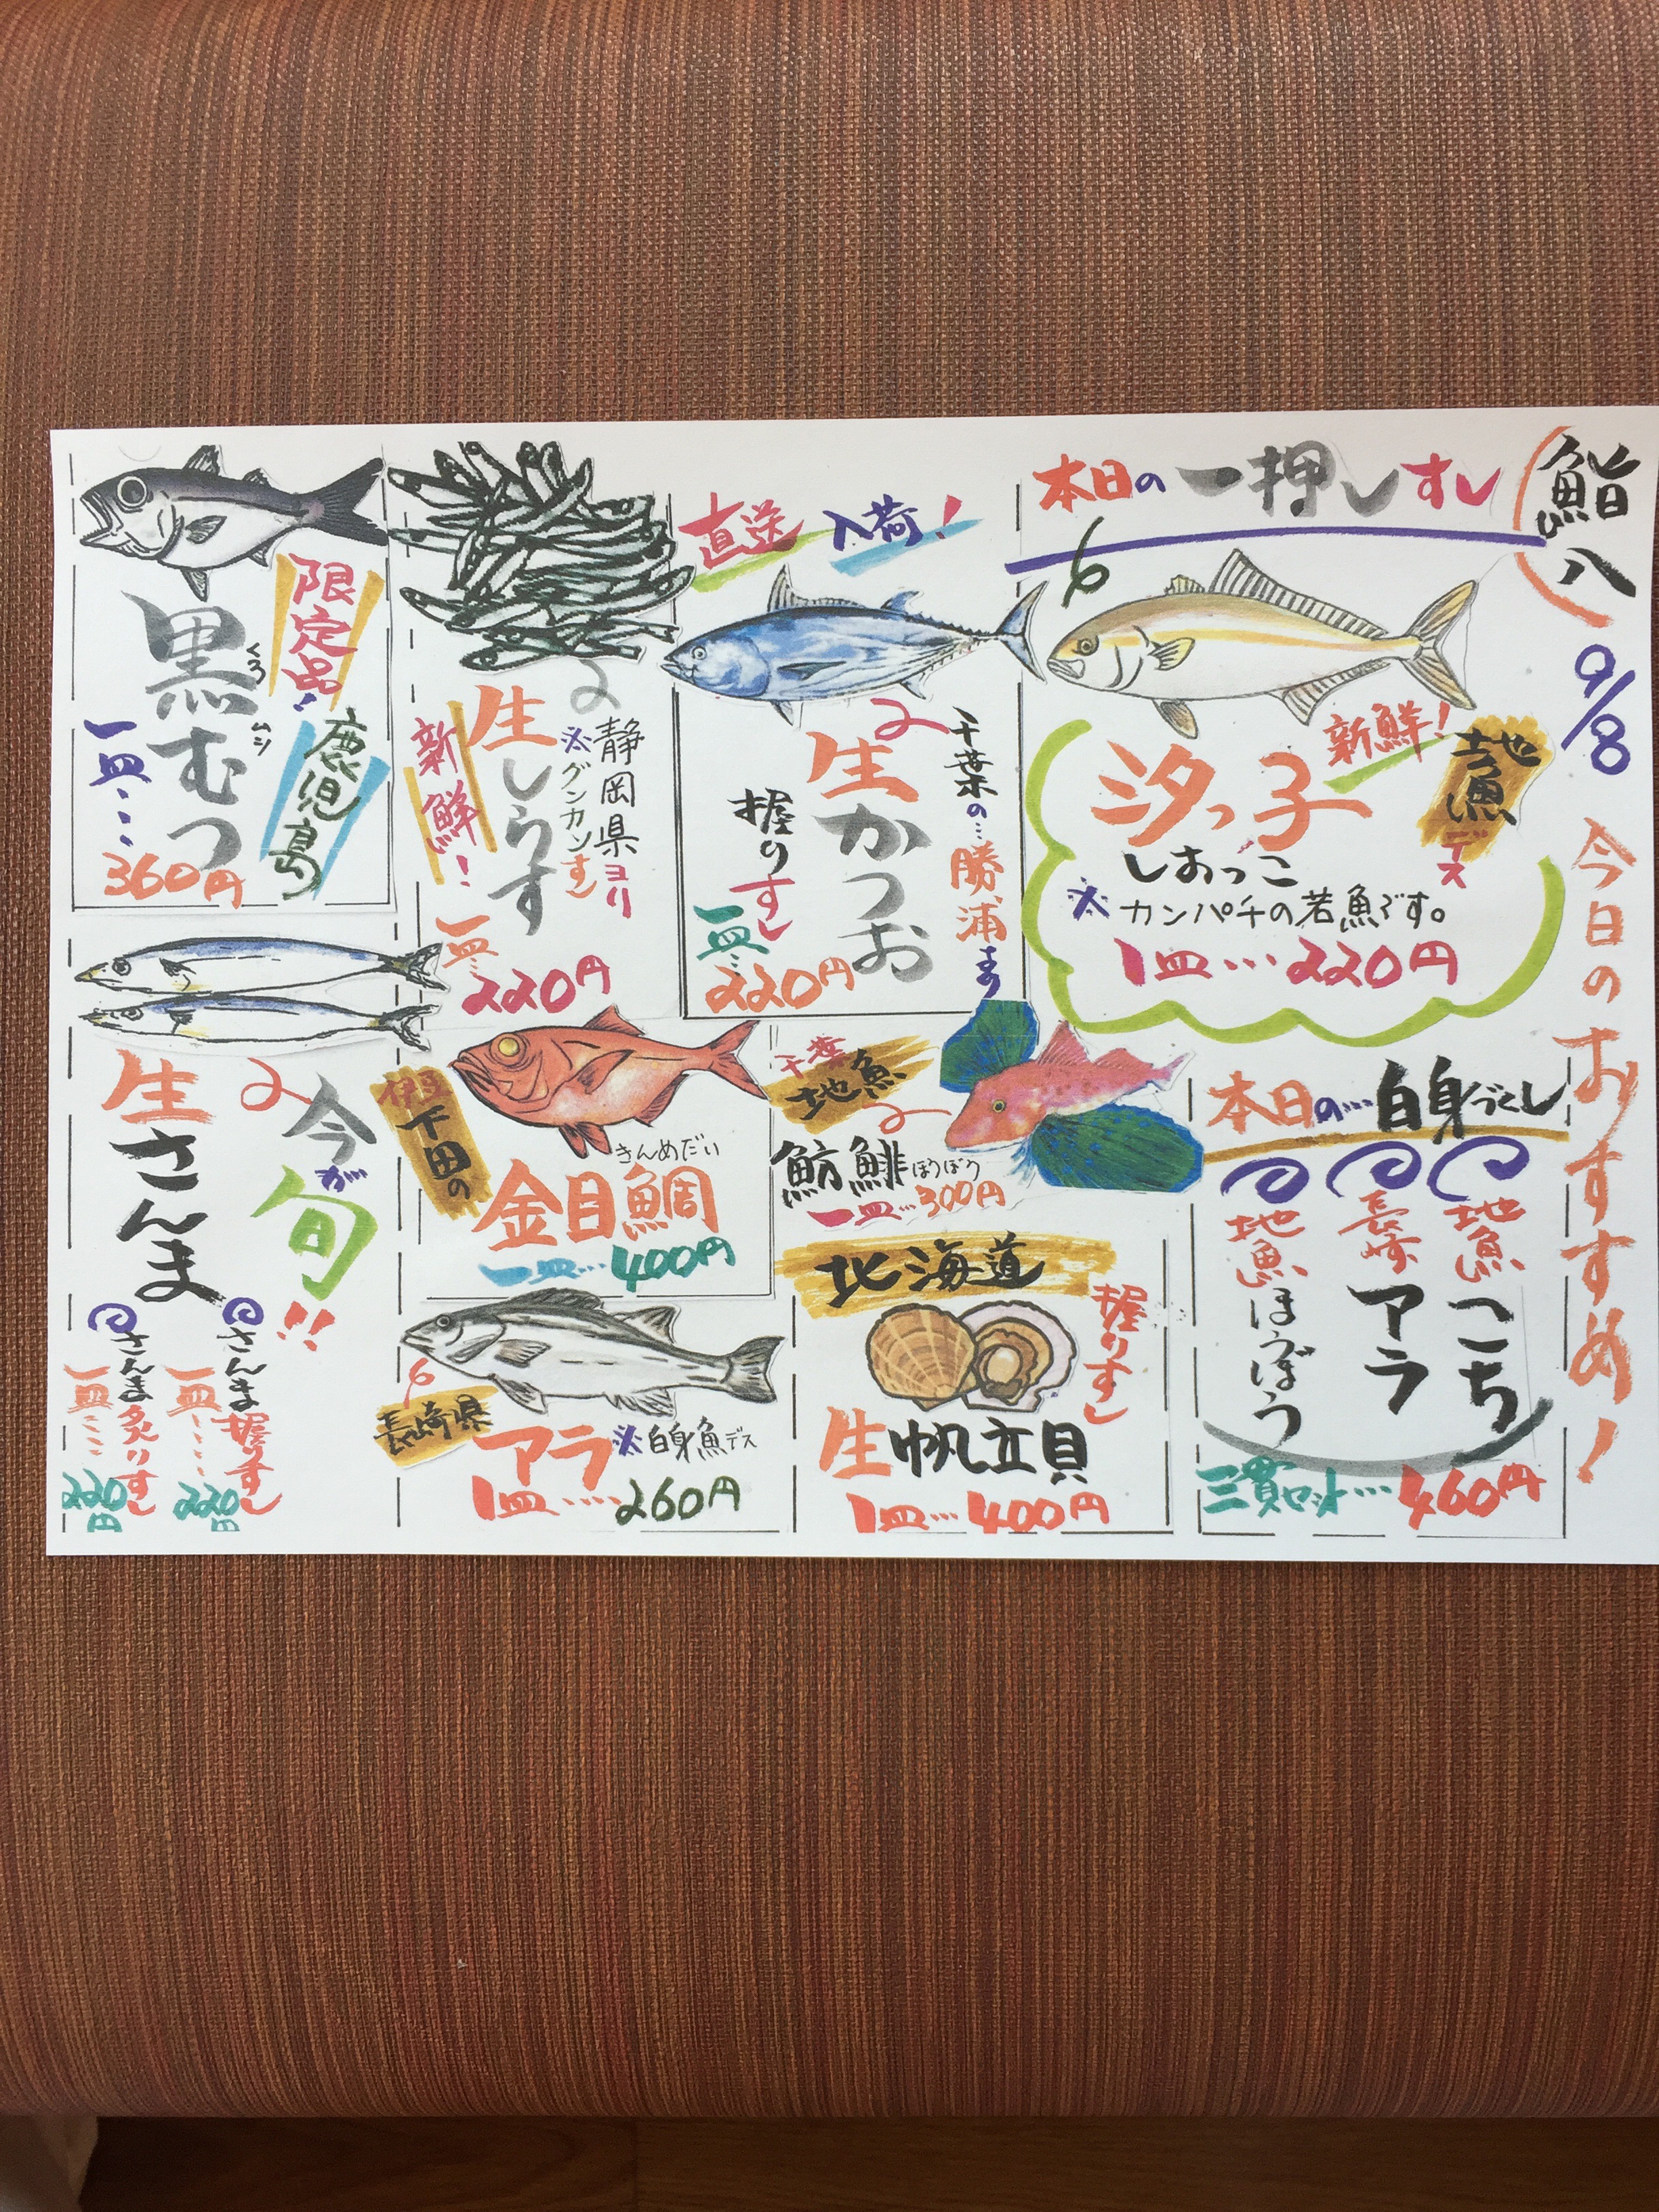 鮨八
9/8
今日のおすすめ!
本日の一押しすし
新鮮!
地魚デス
汐っ子
しおっこ
※カンパチの若魚です。
1皿…220円
直送入荷!
千葉の…勝浦
生かつお
握りすし
一皿…220円
静岡県ヨリ
※グンカンすし
生しらす
新鮮!
一皿…220円
限定品!
鹿児島
黒むつ
くろムツ
一皿…360円
本日の…白身づくし
地魚こち
長崎アラ
地魚ほうぼう
三貫セット…460円
千葉地魚
魴鮄
ほうぼう
一皿…300円
北海道
握りすし
生帆立貝
1皿…400円
伊豆下田の
きんめだい
金目鯛
一皿…400円
長崎県
アラ
※白身魚デス
1皿…260円
今が旬!!
生さんま
さんま握りすし
一皿…220円
さんま炙りすし
一皿…220円